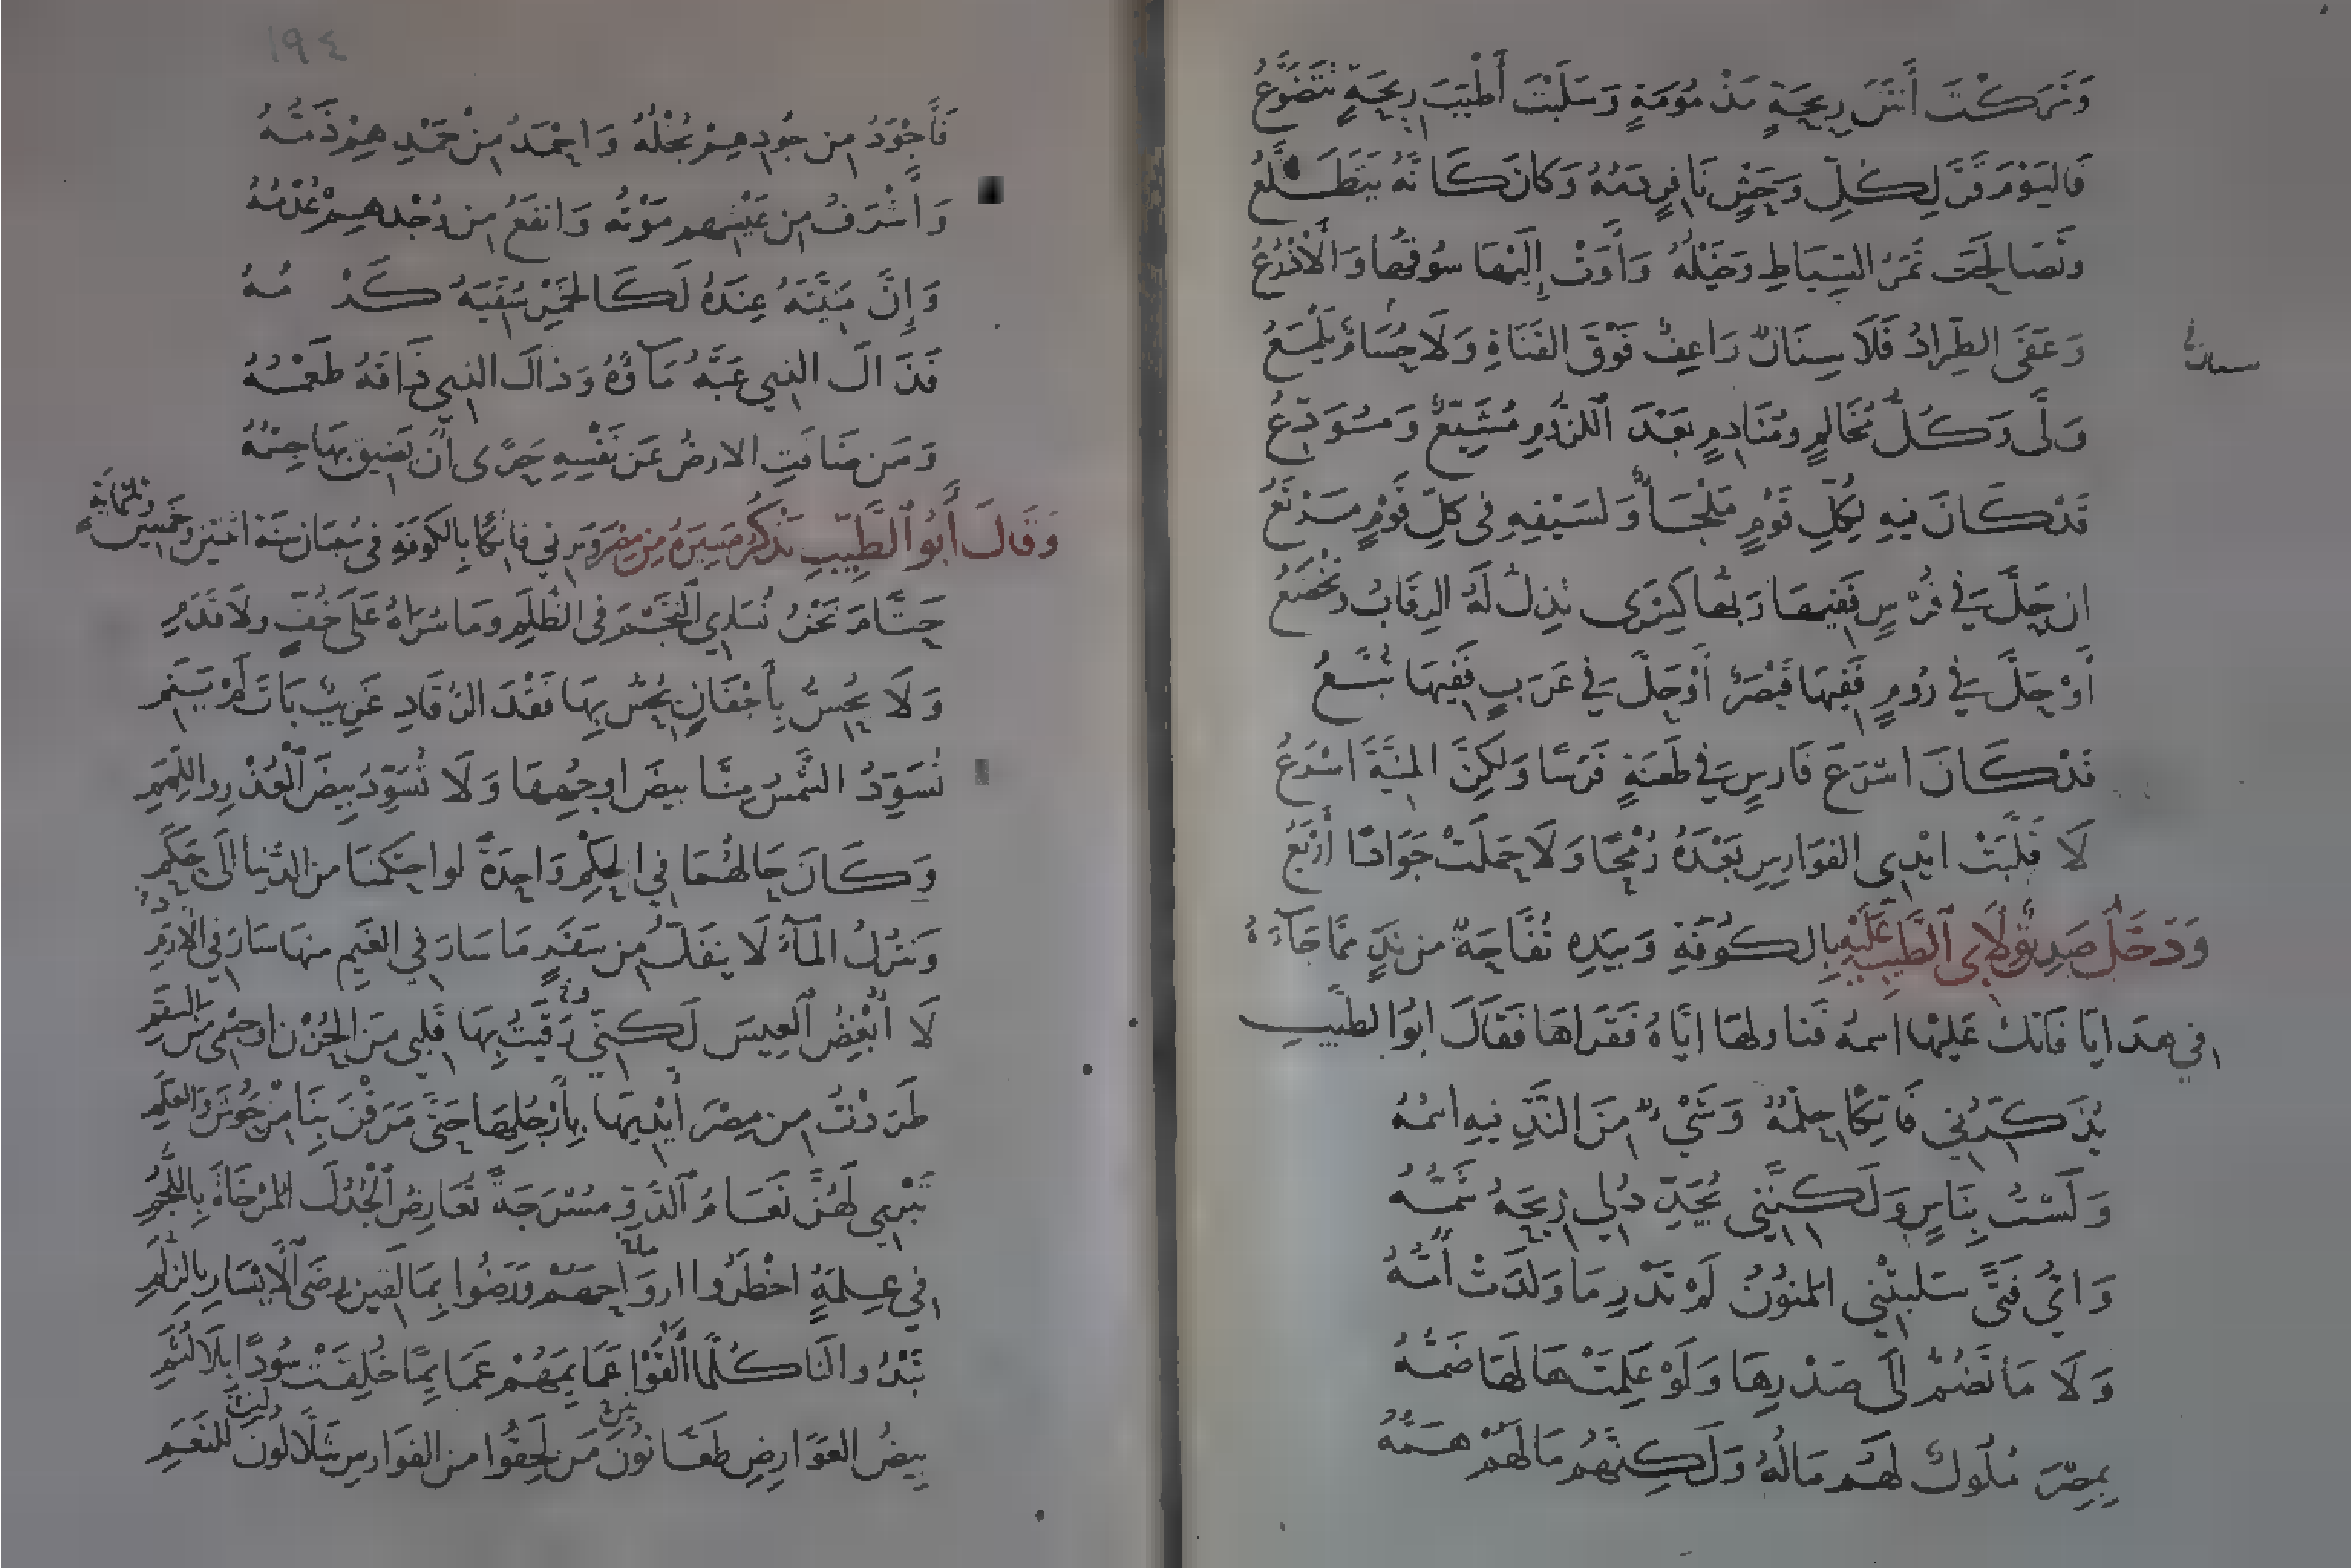 وَتَرَكْتَ أَنْتَنَ رِيحَةٍ مَذْمُومَةٍ وَسَلَبْتَ أَطْيَبَ رِيحَةٍ تَتَضَوَّعُ
فَاليَوْمَ قَرَّ لِكُلِّ وَحْشٍ نَافِرٍ دَمُهُ وَكَانَ كَأَنَّهُ يَتَطَلَّعُ
وَتَصَالَحَتْ ثَمَرُ السِّيَاطِ وَخَيْلُهُ وَأَوَتْ إِلَيْهَا سُوقُهَا وَالْأَذْرُعُ
وَعَفَى الطِّرَادُ فَلَا سِنَانٌ رَاعِفٌ فَوْقَ القَنَاةِ وَلَا حُسَامٌ يَلْمَعُ
وَلَّى وَكُلُّ مُخَالِمٍ وَمُنَادِمٍ بَعْدَ اللُّزُومِ مُشَيِّعٌ وَمُوَدِّعُ
قَدْ كَانَ فِيهِ لِكُلِّ قَوْمٍ مَلْجَأٌ وَلِسَيْفِهِ فِي كُلِّ قَوْمٍ مَرْتَعُ
ان حَلَّ فِي فُرْسٍ فَفِيهَا رَبُّهَا كِسْرَى تَذِلُّ لَهُ الرِّقَابُ وَتَخْضَعُ
أَوْ حَلَّ فِي رُومٍ فَفِيهَا قَيْصَرٌ أَوْ حَلَّ فِي عَرَبٍ فَفِيهَا تُبَّعُ
قَدْ كَانَ اسْرَعَ فَارِسٍ فِي طَعْنَةٍ فَرَسًا وَلَكِنَّ المَنِيَّةَ اسْرَعُ
لَا قَلَّبَتْ ايْدِي الفَوَارِسِ بَعْدَهُ رُمْحًا وَلَا حَمَلَتْ جَوَادًا أَرْبَعُ
وَدَخَلَ صَدِيقٌ لِأَبِي الطَّيِّبِ عَلَيْهِ بِالكُوفَةِ وَبِيَدِهِ تُفَّاحَةٌ مِن نَدٍّ مِمَّا جَآءَهُ
فِي هَدَايَا فَاتِك عَلَيْهَا اسمُهُ فَنَاوَلَهَا ايَّاهُ فَقَرَاهَا فَقَالَ ابُو الطَّيِّبِ
يُذَكِّرُنِي فَاتِكًا حِلْمُهُ وَشَيْءٌ مِنَ النَّدِّ فِيهِ اسْمُهُ
وَلَسْتُ بِنَاسٍ وَلَكِنَّنِي يُجَدِّدُ لِي رِيحَهُ شَمُّهُ
وَايُّ فَتًى سَلَبَتْنِي المَنُونُ لَمْ تَدْرِ مَا وَلَدَتْ أُمُّهُ
وَلَا مَا تَضُمُّ الَى صَدْرِهَا وَلَوْ عَلِمَتْ هَالَهَا ضَمُّهُ
بِمِصْرَ مُلُوكٌ لَهُم مَالُهُ وَلَكِنَّهُمْ مَا لَهُمْ هَمُّهُ
١٩٤
فَأَجْوَدُ مِن جُودِهِمْ بُخْلُهُ وَاحْمَدُ مِنْ حَمْدِهِمْ ذَمُّهُ
وَأَشْرَفُ مِن عَيْشِهِم مَوْتُهُ وَانفَعُ مِن وُجْدِهِمْ عُدْمُهُ
وَإِنَّ مَنِيَّتَهُ عِندَهُ لَكَالخَمْرِ سُقِّيَهُ كَرْمُهُ
فَذَاكَ الذِي عَبَّهُ مَاؤُهُ وَذَاكَ الذِي ذَاقَهُ طَعْمُهُ
وَمَن ضَاقَتِ الارضُ عَن نَفْسِهِ حَرًى أَن يَضِيقَ بِهَا جِسْمُهُ
وَقَالَ أَبُو الطَّيِّبِ يَذْكُرُ مَسِيرَهُ مِن مِصْرَ وَيَرثِي فَاتِكًا بِالكُوفَةِ فِي شَعْبَانَ سَنَةَ اثْنَتَيْنِ وَخَمْسِينَ وَثَلَثمِائَةٍ
حَتَّامَ نَحْنُ نُسَارِي النَّجْمَ فِي الظُّلَمِ وَمَا سُرَاهُ عَلَى خُفٍّ وَلَا قَدَمِ
وَلَا يُحِسُّ بِأَجْفَانٍ يُحِسُّ بِهَا فَقْدَ الرُّقَادِ غَرِيبٌ بَاتَ لَمْ يَنَمِ
تُسَوِّدُ الشَّمْسُ مِنَّا بِيضَ اوجُهِهَا وَلَا تُسَوِّدُ بِيضَ الْعُذْرِ وَاللِّمَمِ
وَكَانَ حَالُهُمَا فِي الحُكْمِ وَاحِدَةً لَو احْتَكَمْنَا مِنَ الدُّنْيَا الَى حَكَمِ
وَنَتْرُكُ المَآءَ لَا يَنْفَكُّ مِن سَفَرٍ مَا سَارَ فِي الغَيْمِ مِنهَا سَارَ فِي الأَدَمِ
لَا أُبْغِضُ الْعِيسَ لَكِنِّي وَقَيْتُ بِهَا قَلْبِي مِنَ الحُزْنِ اوجِسْمِي مِنَ السَّقَمِ
طَرَدْتُ مِن مِصْرَ أَيْدِيهَا بِأَرْجُلِهَا حَتَّى مَرَقْنَ بِنَا مِنْ جَوْشَ وَالعَلَمِ
تَبْرِي لَهُنَّ نَعَامُ الدَّوِّ مُسْرَجَةً تُعَارِضُ الجُدُلَ المُرْخَاةَ بِاللُّجُمِ
فِي غِلْمَةٍ اخْطَرُوا ارْوَاحَهُمْ وَرَضُوا بِمَا لَقِينَ رِضَى الْأَيْسَارِ بِالزَّلَمِ
تَبْدُو لَنَا كُلَّمَا أَلْقَوْا عَمَايِمَهُمْ عَمَايِمًا خُلِقَتْ سُودًا بِلَا لُثُمِ
بِيضُ العَوَارِضِ طَعَّانُونَ مَن لَحِقُوا مِنَ الفَوَارِسِ شَلَّالُونَ لِلنَّعَمِ